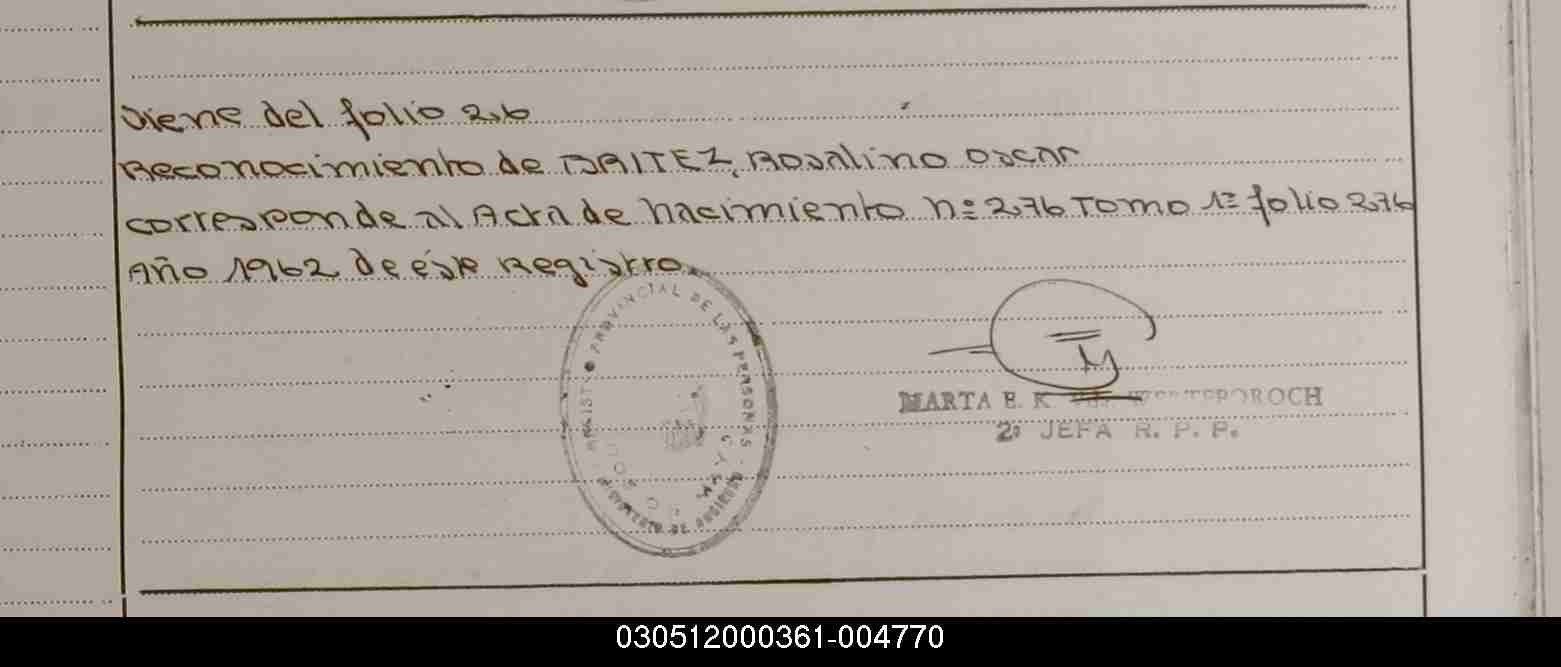 Viene del folio 26
Reconocimiento de BAITEZ, Rosalino Oscar
corresponde al Acta de nacimiento nº 276 Tomo 1º folio 276
Año 1962 de éste Registro.
PROVINCIAL DE LAS PERSONAS
MARTA E. K
2ª JEFA R. P. P.
030512000361-004770